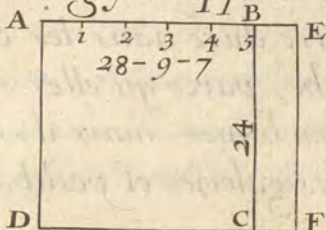 A B E
1 2 3 4 5
28-9-7
24
D C F